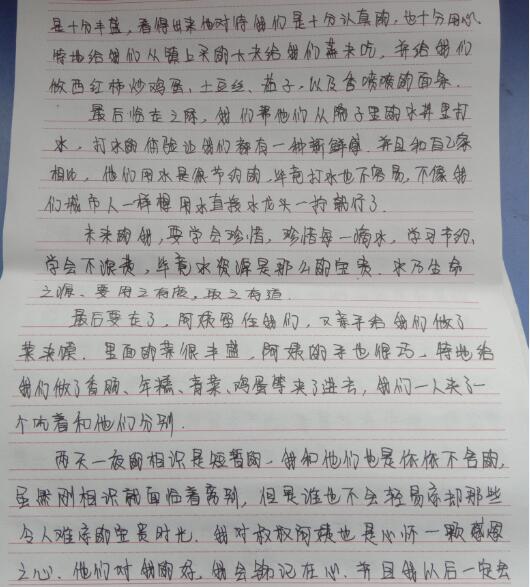 是十分丰盛，看得出来他对待我们是十分认真的，也十分用心。
特地给我们从镇上买的大夹给我们蒸来吃，并给我们
做西红柿炒鸡蛋、土豆丝、茄子，以及香喷喷的面条。
最后临走之际，我们帮他们从院子里的水井里打
水，打水的体验让我们都有一种新鲜感。并且和自己家
相比，他们用水是很节约的，毕竟打水也不容易，不像我
们城市人一样想用水直接水龙头一拧就行了。
未来的我，要学会珍惜，珍惜每一滴水，学习节约，
学会不浪费，毕竟水资源是那么的宝贵。水乃生命
之源、要用之有度，取之有道。
最后要走了，阿姨留住我们，又亲手给我们做了
菜夹馍。里面的菜很丰盛，阿姨的手也很巧，特地给
我们做了香肠、年糕、青菜、鸡蛋等夹了进去，我们一人夹了一
个吃着和他们分别。
两天一夜的相识是短暂的，我和他们也是依依不舍的，
虽然刚相识就面临着离别，但是谁也不会轻易忘却那些
令人难忘的宝贵时光。我对叔叔阿姨也是心怀一颗感恩
之心。他们对我的好，我会铭记在心，并且我以后一定去